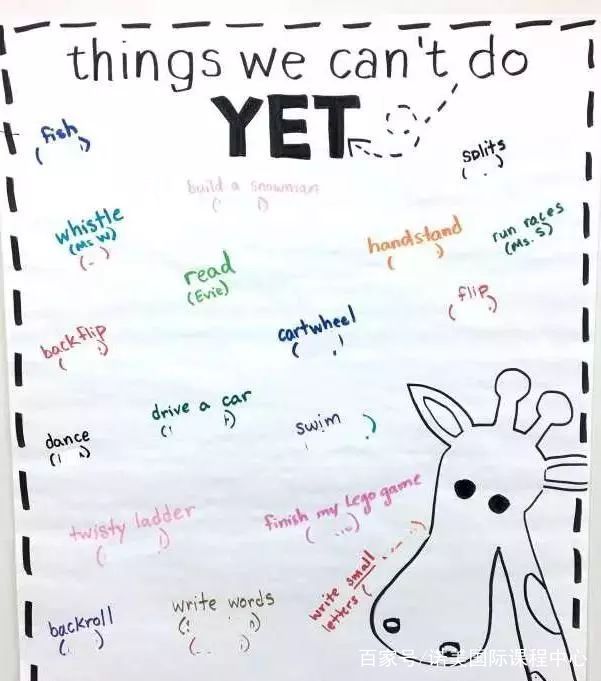 things we can't do
YET
fish
splits
build a snowman
whistle
(Ms W)
handstand
run races
(Ms. S)
read
(Evie)
flip
cartwheel
backflip
drive a car
swim
dance
twisty ladder
finish my Lego game
write small
letters
backroll
write words
百家号/诺美国际课程中心